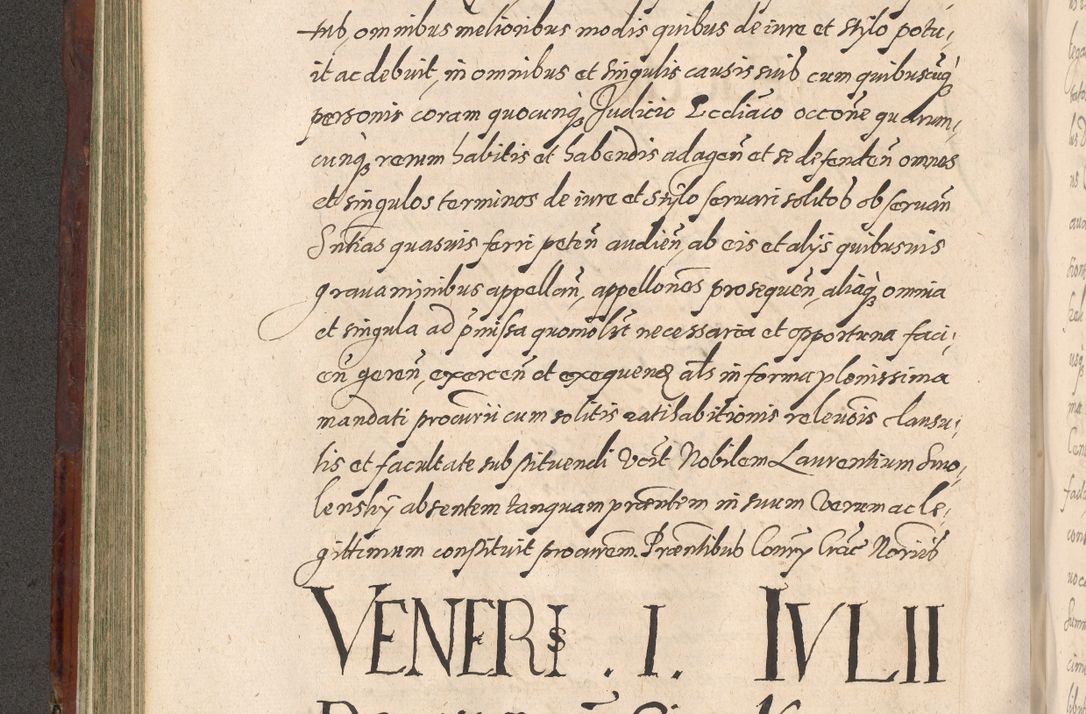 tub, omnibus melioribus modis quibus de iure et stylo potu,
it ac debuit, in omnibus et singulis causis suis cum quibuscūq̢
personis coram quocunq̢ Judicio Ecclīaco occōne quarum,
cunq̢ rerum habitis et habendis ad agen̄ et se defenden̄ omnes
et singulos terminos de iure et stylo servari solitos observan̄
Sn̄tias quasvis ferri peten̄ audien̄, ab eis et alijs quibusvis
gravaminibus appellan̄, appellōnes prosequen̄, aliaq̢ omnia
et singula ad p̄missa quomōlt necessaria et opportuna faci,
en̄ geren̄, exercen̄ et exequen̄ als in forma plenissima
mandati procurii cum solitis ratihabitionis releuōis clausu,
lis et facultate substituendi Vocit Nobilem Laurentium Smo,
lenskÿ absentem tanquam præntem in suum Verum ac le,
gittimum constituit procurem. Præntibus Conr̄y Crac̄ Noriis
VENERIS . I . IVLII